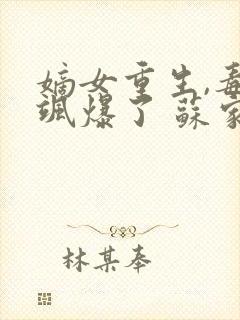 嫡女重生,毒
飒爆了蘇家
林某奉